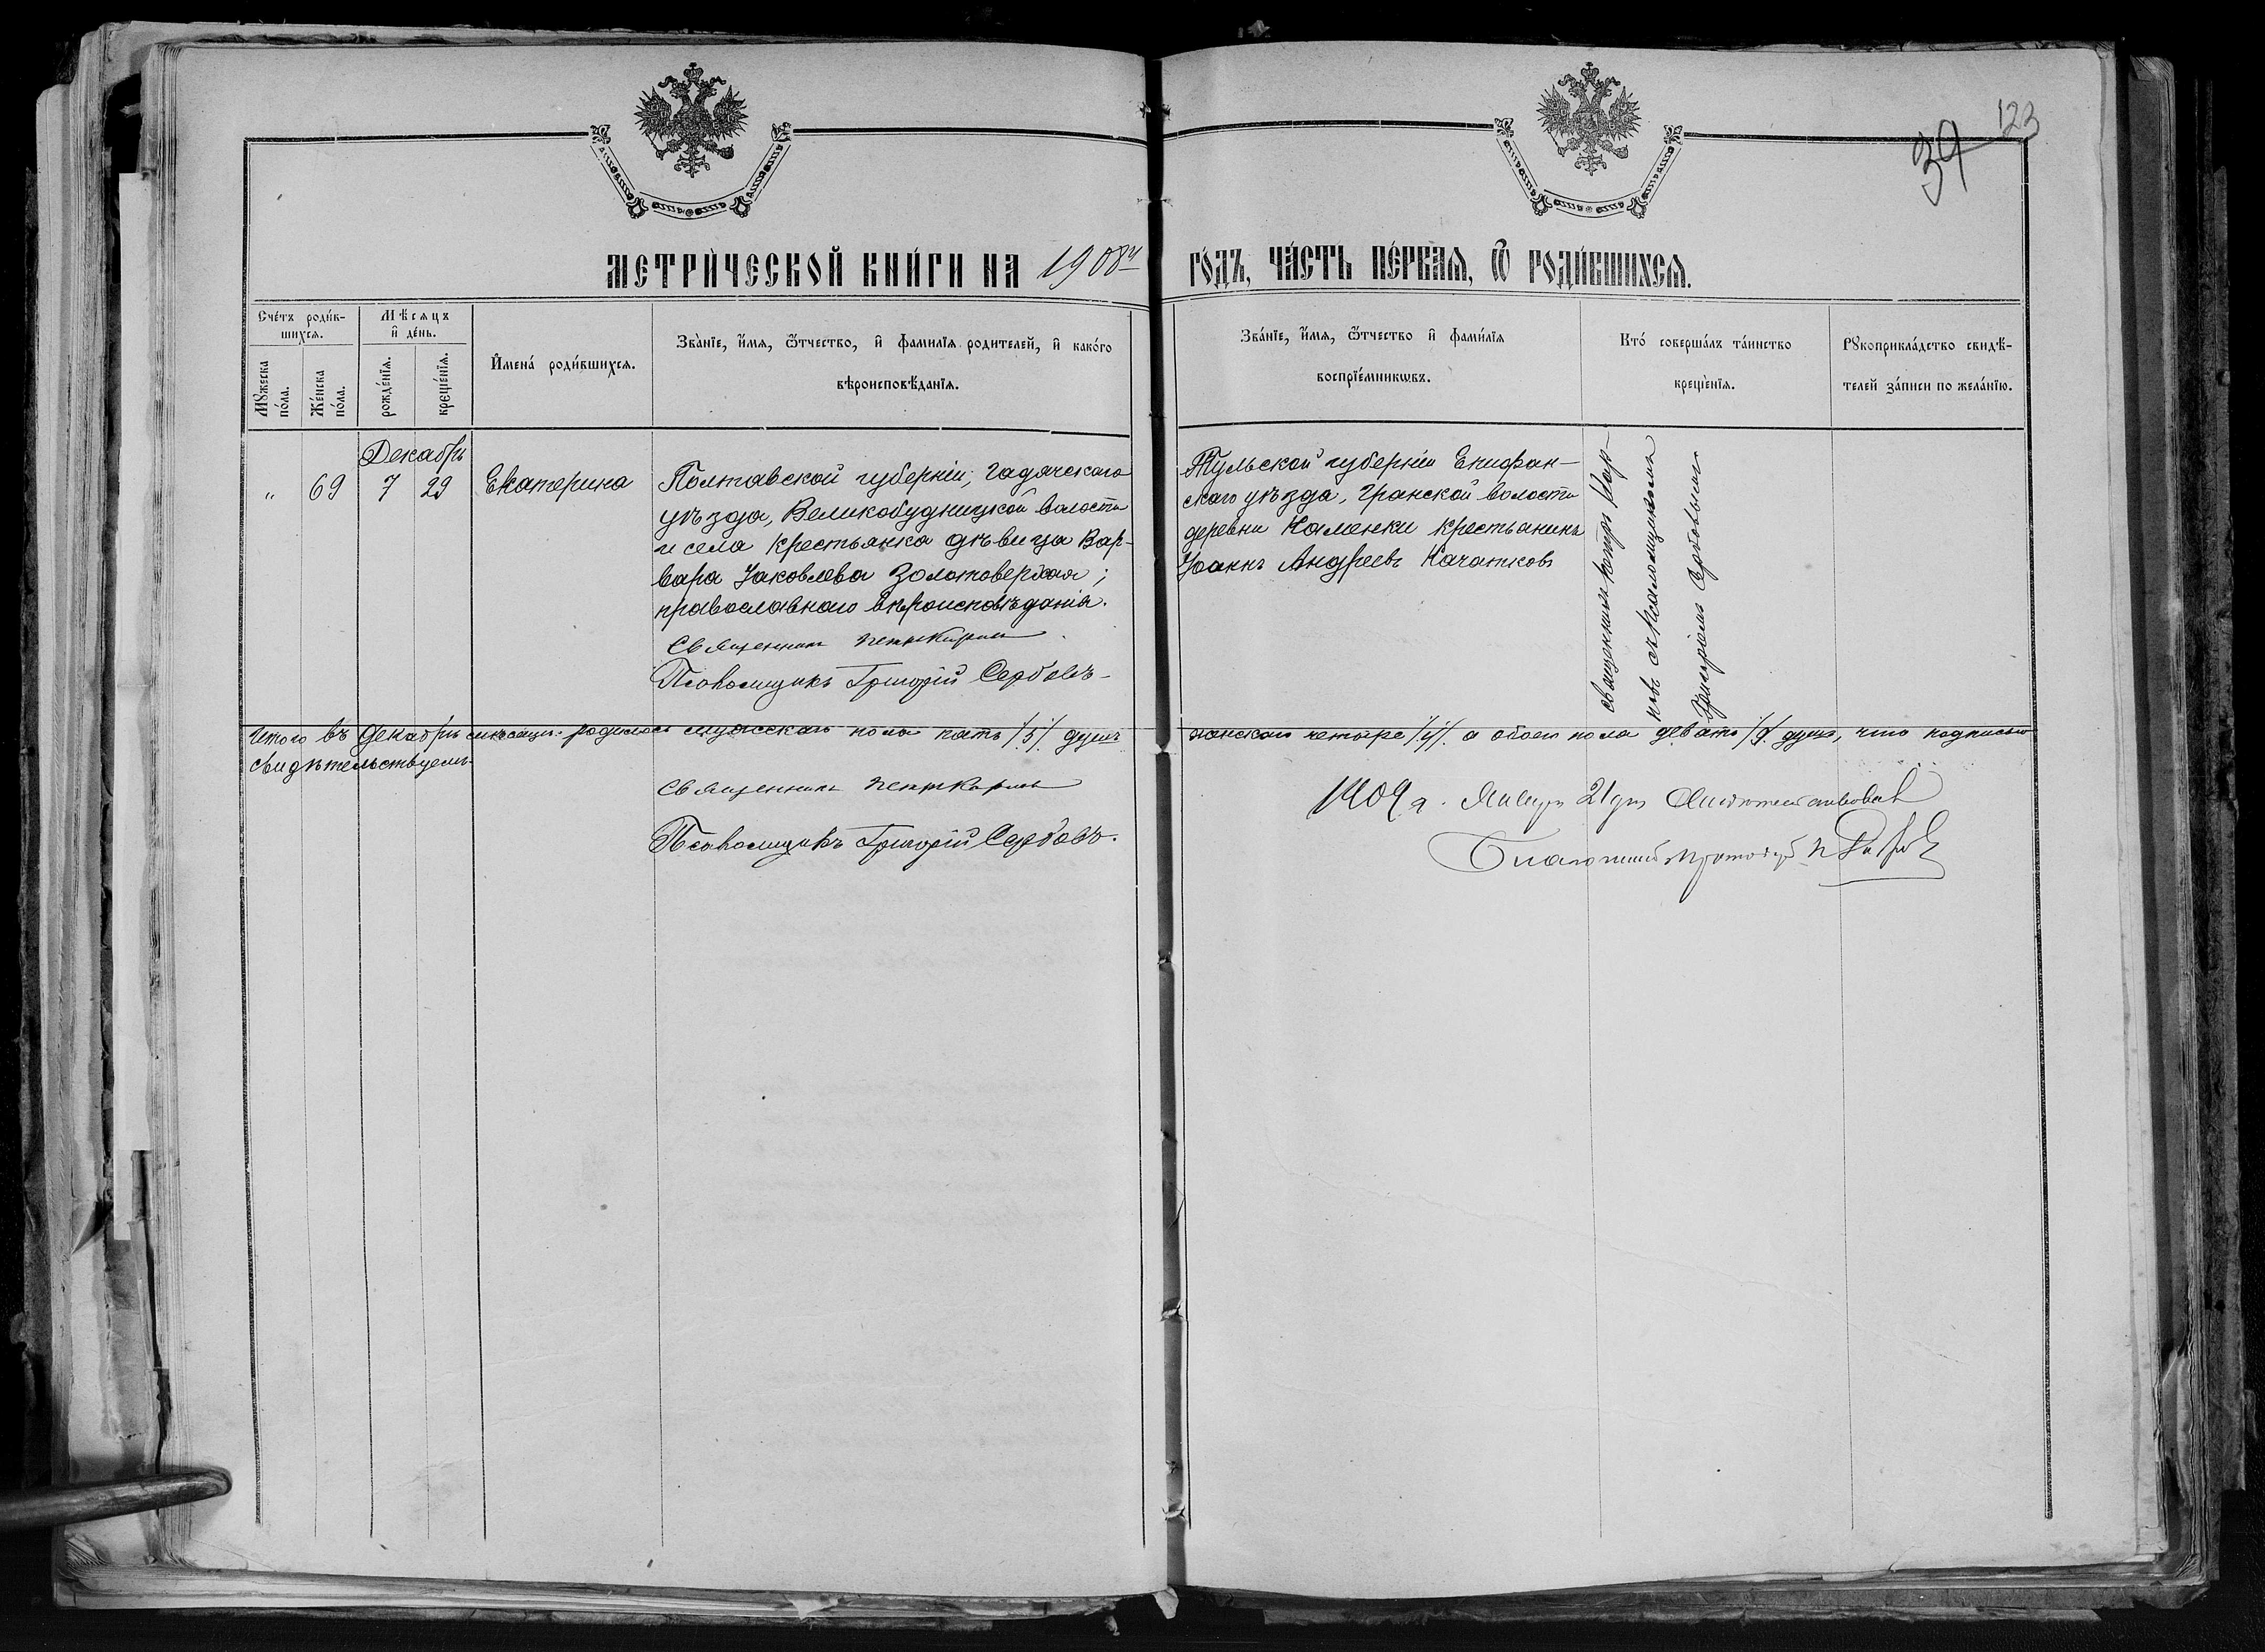 123
39
МЕТРИ́ЧЕСКОЙ КНИ́ГИ НА 1908й
ГО́ДЪ, ЧА́СТЬ ПЕ́РВАѦ, Ѿ РОДИ́ВШИХСѦ.
Сче́тъ роди́в-
шихсѧ.
Мꙋ́жеска
по́ла.
Же́нска
по́ла.
Мѣ́сѧцъ
и҆ де́нь.
рожде́нїѧ.
креще́нїѧ.
И҆мена́ роди́вшихсѧ.
Зва́нїе, и҆́мѧ, ѻ҆́тчество, и҆ фами́лїѧ родителей, и҆ како́го
вѣроисповѣ́данїѧ.
Зва́нїе, и҆́мѧ, ѻ҆́тчество и҆ фами́лїѧ
воспрїе́мникѡвъ.
Кто́ соверша́лъ та́инство
креще́нїѧ.
Рꙋкоприкла́дство свидѣ́-
телей за́писи по жела́нїю.
Декабрь
„ 69 7 29 Екатерина
Полтавской губерніи, Гадячскаго
уѣзда, Великобудницкой волости
и села крестьянка дѣвица Вар-
вара Іаковлева Золотоверхая;
православнаго вѣроисповѣданія.
Священникъ
Псаломщикъ Григорій Сербовъ
Тульской губерніи Епифан-
скаго уѣзда, Гранской волости
деревни Каменки крестьянинъ
Іоаннъ Андреевъ Качатковъ
Священникъ Петръ Кир-
псаломщикомъ
Григоріемъ Сербовымъ
Итого въ Декабрѣ мѣсяцѣ родилось мужскаго пола пять /5/ душъ
женскаго четыре /4/ а обоего пола девять /9/ душъ, что подписью
свидѣтельствуемъ.
Священникъ
Псаломщикъ Григорій Сербовъ.
1909 г. Января 21 дня Свидѣтельствовалъ
Благочинный